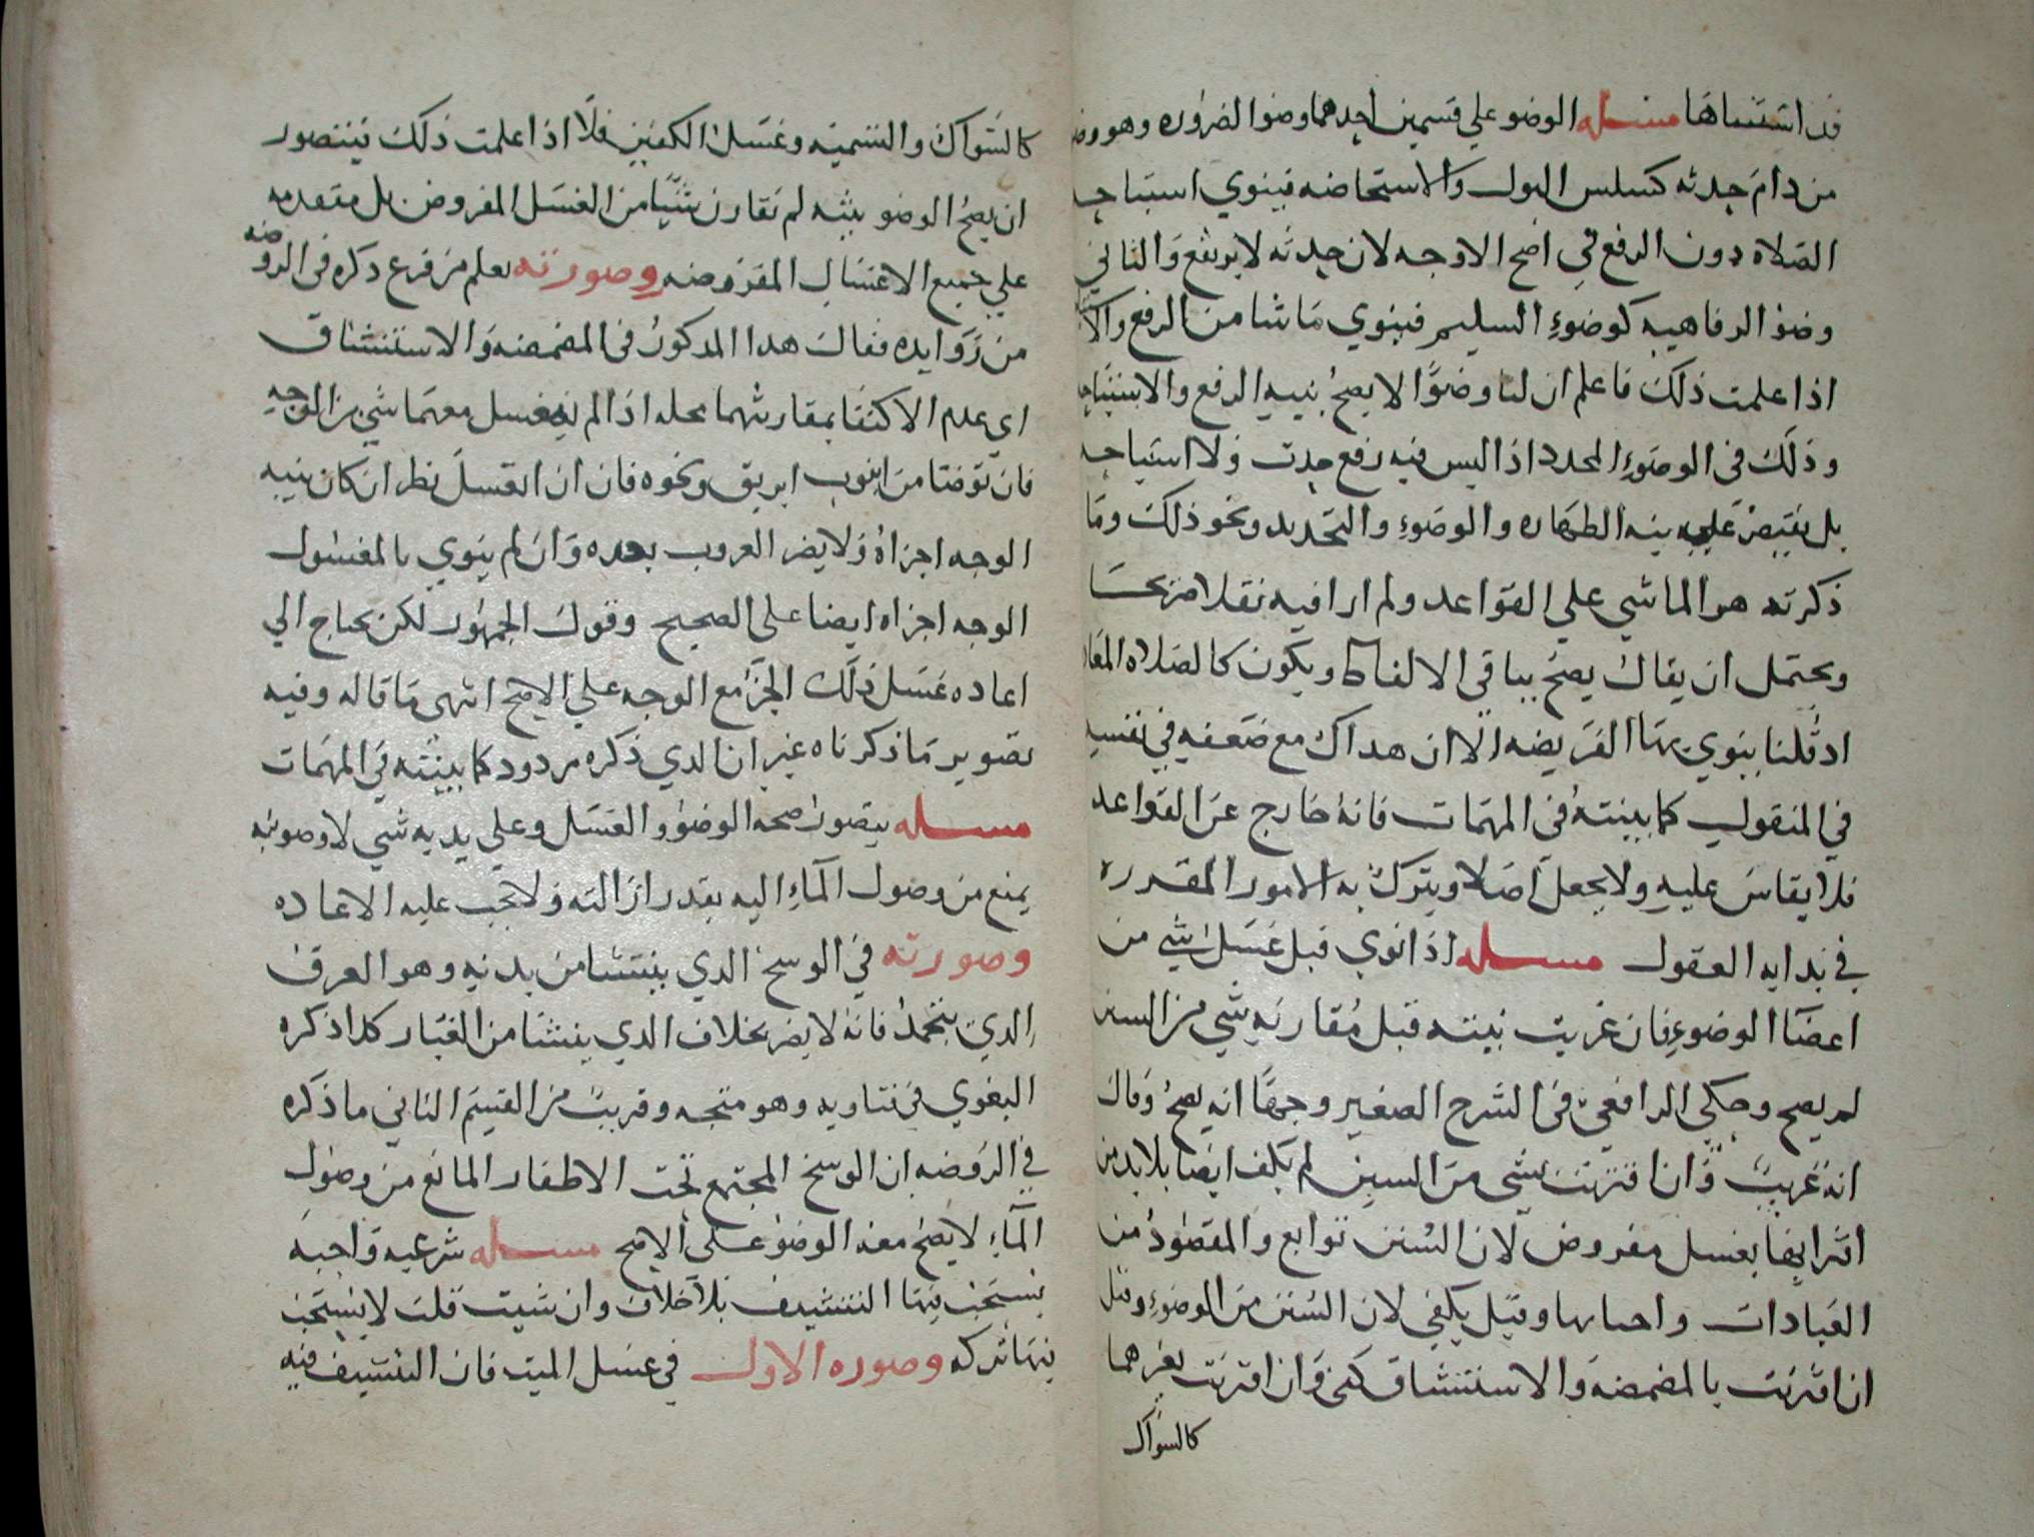 قد استثناها مسله الوضو علي قسمين احدهما وضوا الضروره وهو وضو
من دام حدثه كسلس البول والاستحاضه فينوي استباحه
الصلاه دون الرفع في اصح الاوجه لان حدثه لا يرتفع والثاني
وضوا الرفاهيه كوضوء السليم فينوي ما شا من الرفع
اذا علمت ذلك فاعلم ان لنا وضوا لا يصح بنيه الرفع والاستباحه
وذلك في الوضوء المجدد اذ اليس فيه رفع حدث ولا استباحه
بل يقتصر علي نيه الطهاره والوضوء والتجديد ونحو ذلك وما
ذكرته هو الماشي علي القواعد ولم ار افيه نقلا صريحا
ويحتمل ان يقال يصح بباقي الالفاط ويكون كالصلاه المعاده
اد قلنا ينوي بها الفريضه الا ان هداك مع ضعفه في نفسه
في المنقول كما بينته في المهمات فانه خارج عن القواعد
فلا يقاس عليه ولا يجعل اصلا ويترك به الامور المقرره
في بدايه العقول مسله اذا نوي قبل غسل شي من
اعضآ الوضوء فان عزبت نيته قبل مقارنه شي من السنن
لم يصح وحكي الرافعي في الشرح الصغير وجها انه يصح وقال
انه غريب وان اقترنت بشي من السنن لم يكف ايضا بل لا بد من
اقترانها بغسل مفروض لان السنن توابع والمقصود من
العبادات واجباتها وقيل يكفي لان السنن من الوضوء وقيل
ان اقترنت بالمضمضه والاستنشاق كفي وان اقترنت بغيرهما
كالسواك
كالسواك والتسميه وغسل الكفين فلا اذا علمت ذلك فيتصور
ان يصح الوضو بنيه لم تقارن شيا من الغسل المفروض بل متقدمه
علي جميع الاغتسال المفروضه وصورته يعلم من فرع ذكره في الروضه
من زوايده فقال هدا المدكور في المضمضه والاستنشاق
اي عدم الاكتفا بمقارنتهما محله اذا لم ينغسل معهما شي من الوجه
فان توضا من انبوب ابريق ونحوه فان انغسل نظر ان كان بنيه
الوجه اجزاه ولا يضر العزوب بعده وان لم ينوي بالمغسول
الوجه اجزاه ايضا علي الصحيح وقول الجمهور لكن يحتاج الي
اعاده غسل ذلك الجزء مع الوجه علي الاصح انتهي ما قاله وفيه
تصوير ما ذكرناه غير ان الدي ذكره مردود كما بينته في المهمات
مسله يتصور صحه الوضوا و الغسل وعلي يديه شي لا وصوله
يمنع من وصول المآء اليه بقدر ازالته ولا تجب عليه الاعاده
وصورته في الوسخ الدي ينشا من بدنه وهو العرق
الدي يتجمد فانه لا يضر بخلاف الدي ينشا من الغبار كدا ذكره
البغوي في فتاويه وهو متجه وقريب من القسم الثاني ما ذكره
في الروضه ان الوسخ المجتمع تحت الاظفار المانع من وصول
المآء لا يصح معه الوضو علي الاصح مسله شرعيه واجبه
يستحب فيها التنشيف بلا خلاف وان شيت قلت لا يستحب
فيها تركه وصوره الاول في غسل الميت فان التنشيف فيه